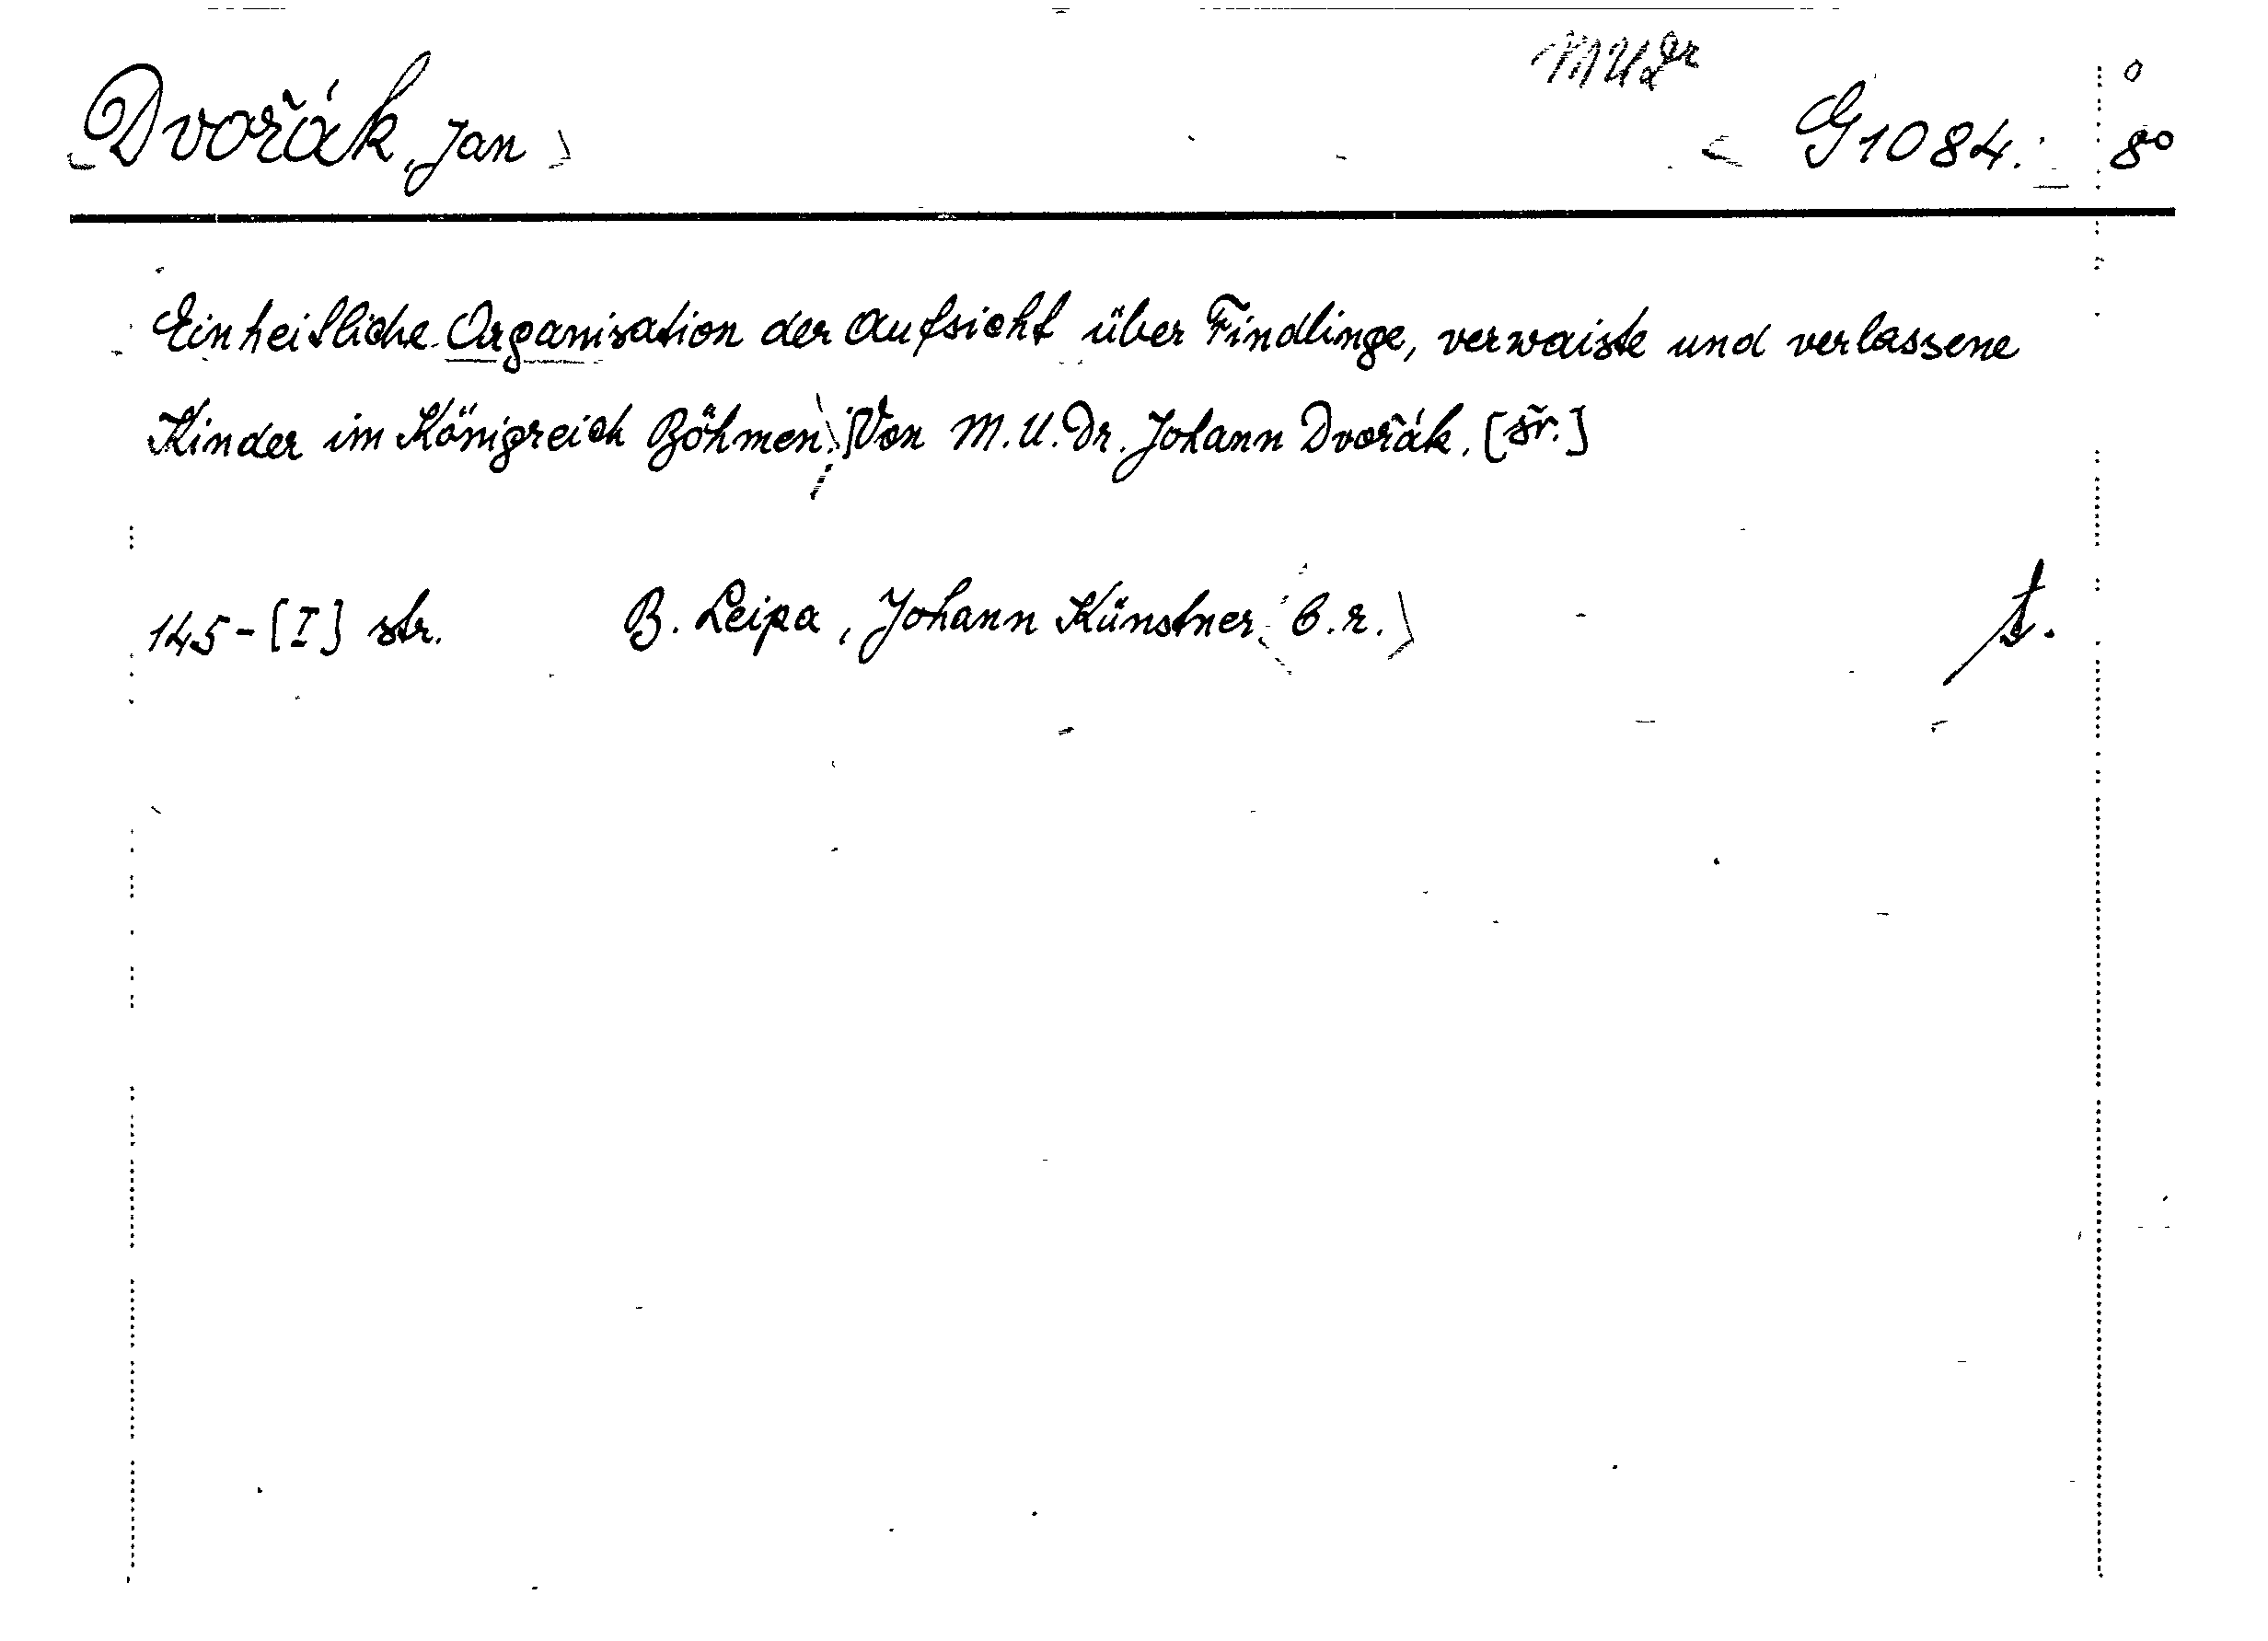 MUDr
Dvořák, Jan G 1084. 8°
Einheitliche Organisation der Aufsicht über Findlinge, verwaiste und verlassene
Kinder im Königreich Böhmen. Von M.U.Dr. Johann Dvořák. [šř.]
145-[I] str. B. Leipa, Johann Künstner b.r.